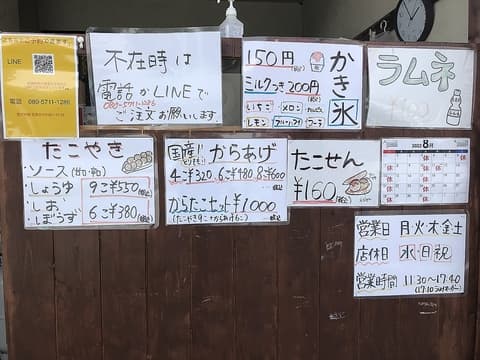 LINE
電話 080-5711-1286
不在時は
電話かLINEで
080-5711-1286
ご注文お願いします。
150円(税込)
ミルクつき200円
(税込)
いちご
メロン
レモン
ブルーハワイ
かき氷
ラムネ
たこやき
ソース(甘口・辛口)
しょうゆ
しお、
しぽうず
9こ¥550(税込)
6こ¥380(税込)
国産!!
とりもも!!
からあげ
4こ¥320、6こ¥480 8こ¥600
税込
からたこセット¥1000
(税込)
(たこやき9こ+からあげ6こ)
たこせん
¥160(税込)
2022 8月
休
営業日 月火・木金土
店休日 水・日・祝
営業時間 11:30〜17:40
(17:10ラストオーダー)